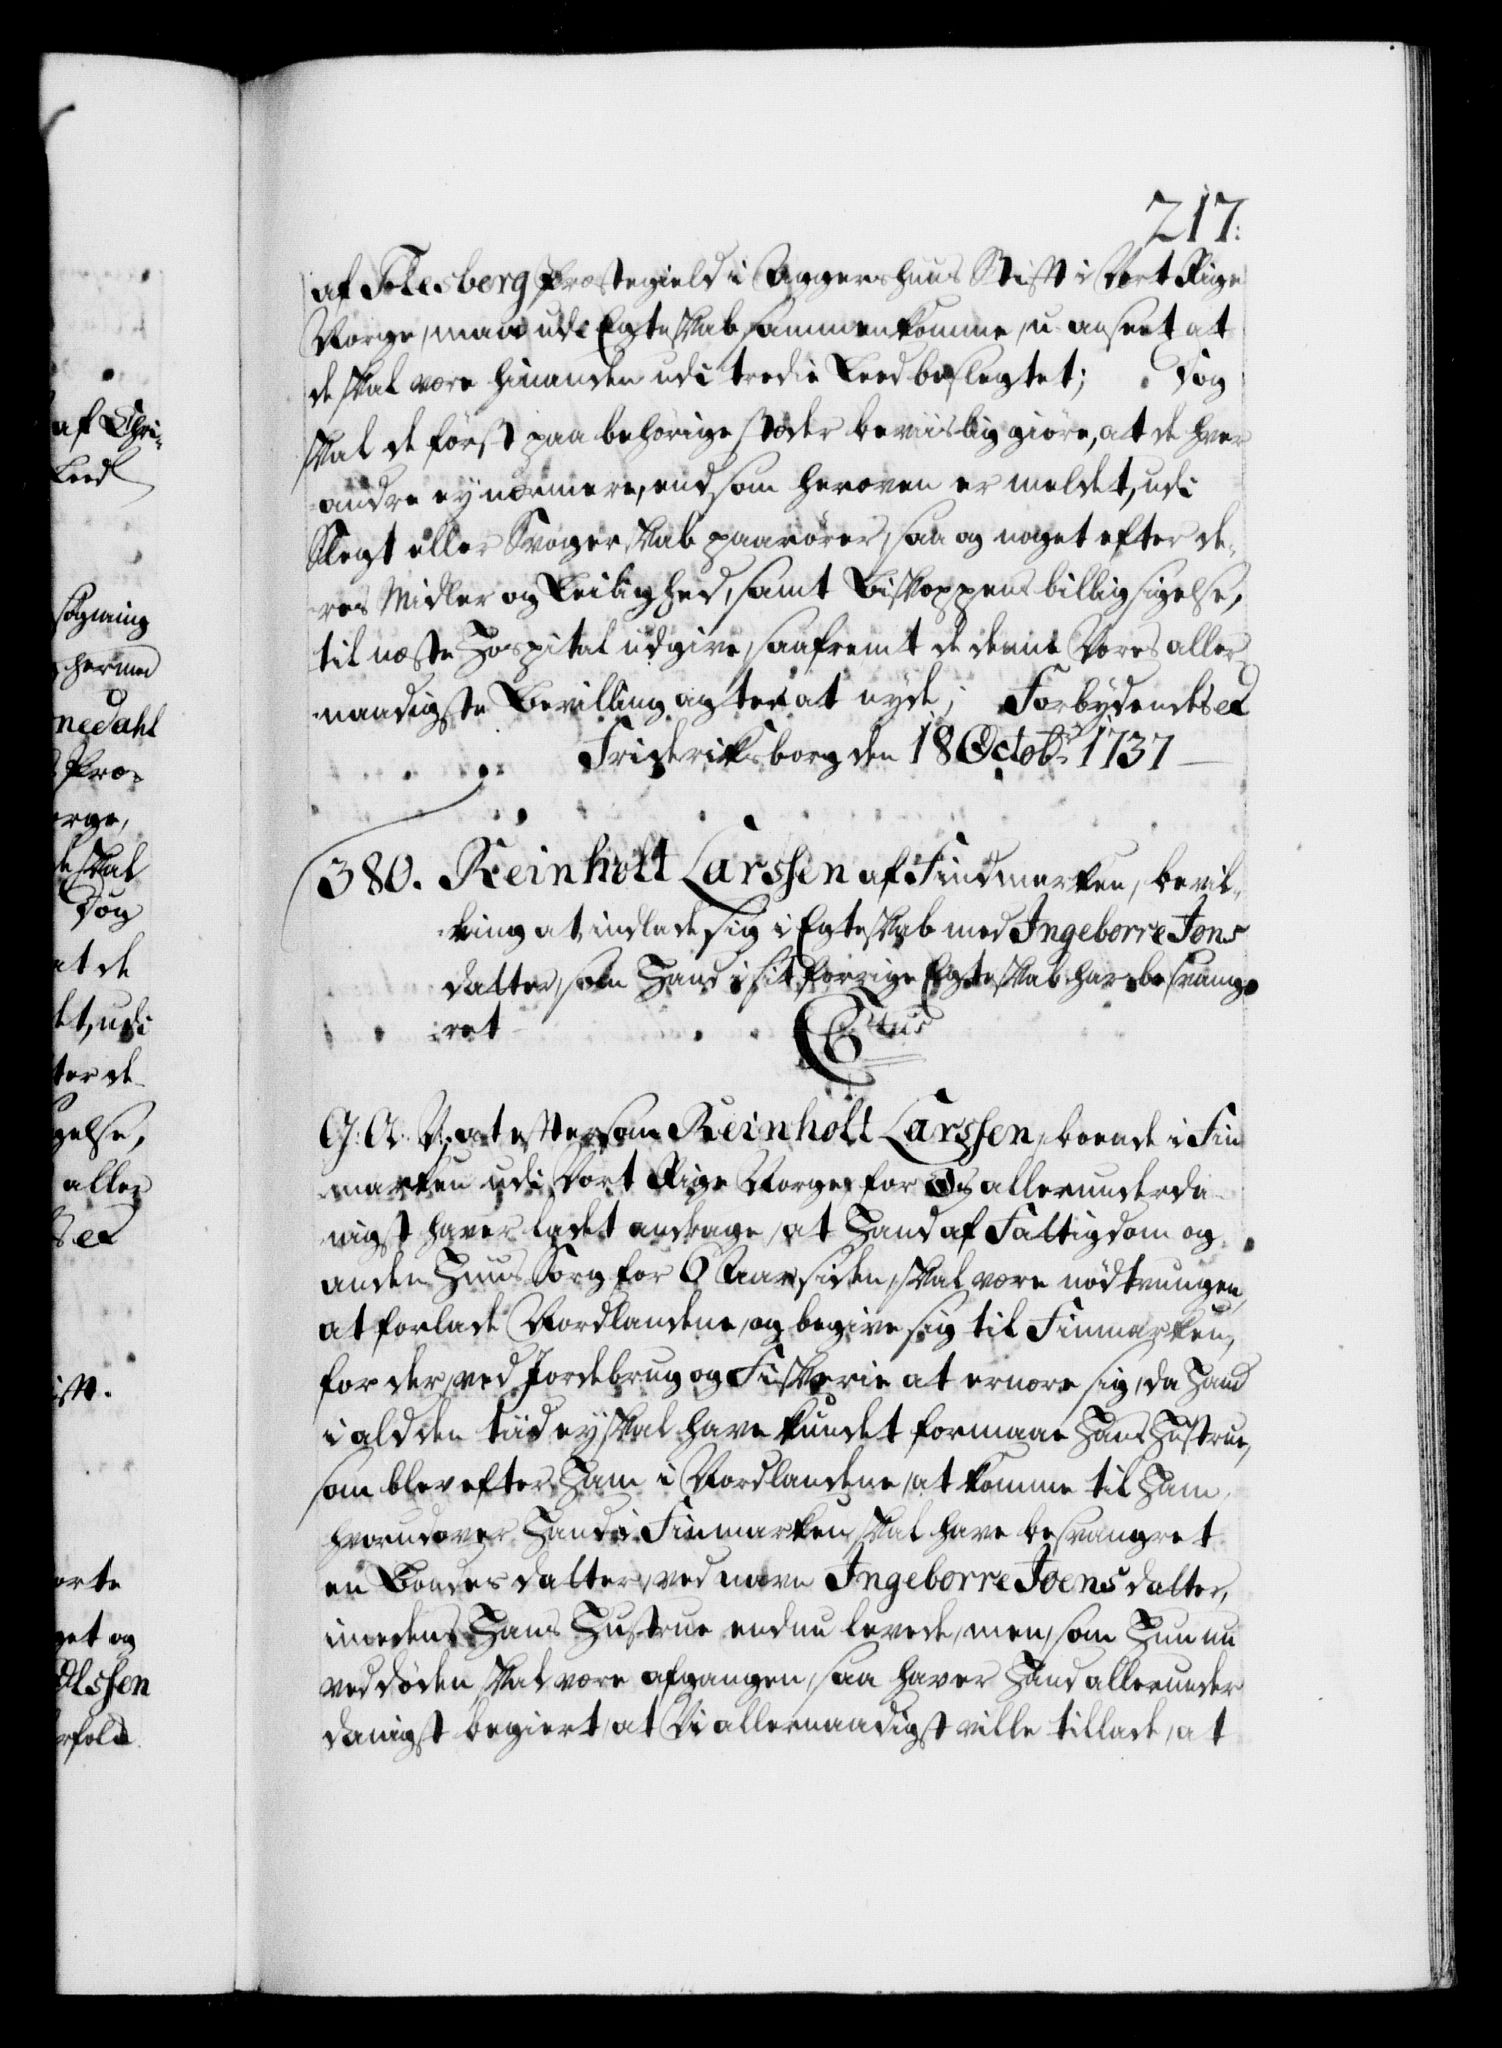 217.
af Flesberg Præstegield i Aggershuus Stift i Vort Rige
Norge, maa udi Egteskab sammenkomme, u-anseet at
de skal være hinanden udi tredie Leed beslegtet; Dog
skal de først paa behørige stæder beviislig giøre, at de hver
andre ey nærmere, end som heroven er meldet, udi
Slegt eller Svogerskab paarører, saa og noget efter de-
res Midler og Leilighed, samt Biskoppens billigsigelse,
til næste Hospital udgive, saafremt de denne Vores aller-
naadigste Bevilling agter at nyde; Forbydendes &c
Friderichsborg den 18 Octobr 1737
380. Reinholt Larssen af Findmarken, bevil-
ling at indlade sig i Egteskab med Ingeborre Jons
datter, som Hand i sit forrige Egteskab har besvang-
ret
C 6tus
G: A: V. at eftersom Reinholt Larssen, boende i Fin
marken udi Vort Rige Norge, for Os allerunderda-
nigst haver ladet andrage, at Hand af Fattigdom og
anden Huus Sorg for 6 Aar siden, skal være nødtrungen,
at forlade Nordlandene, og begive sig til Finmarken,
for der, ved Jordebrug og Fiskerie at ernære sig, da Hand
i ald den tiid ey skal have kundet formaae Hans Hustrue,
som blev efter Ham i Nordlandene, at komme til Ham,
hvorudover Hand i Finmarken skal have besvangret
en Bondes datter, ved navn Ingeborre Joensdatter,
imedens Hans Hustrue endnu levede, men, som Hun nu
ved døden skal være afgangen, saa haver Hand allerunder
danigst begiert, at Vi allernaadigst ville tillade, at
af Chri-
Leed
søgning
hermed
nedahl
Præ-
orge,
de skal
Dog
at de
det, udi
ter de-
gelse,
aller
s &c
ift.
orte
get og
Olssen